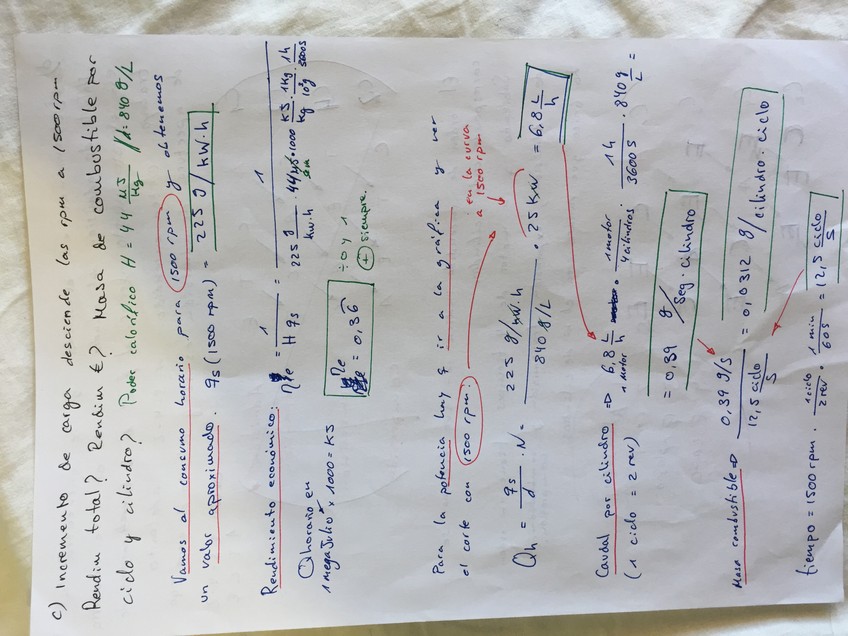 c) Incremento de carga desciende las rpm a 1500 rpm.
Rendim total? Rendim €? Masa de combustible por
ciclo y cilindro? Poder calorífico H = 44 MJ/kg // d: 840 g/L
Vamos al consumo horario para 1500 rpm y obtenemos
un valor aproximado. qs (1500 rpm) = 225 g/kW·h
Rendimiento económico: ηe = 1 / H qs = 1 / 225 g/kw·h · 44 · 1000 KJ/kg · 1Kg/10³g · 1h/3600s
Q horario en
1 mega Julio × 1000 = KJ
ηe = 0,36
÷ 0 y 1
+ siempre.
Para la potencia hay q ir a la gráfica y ver
el corte con 1500 rpm.
en la curva
a 1500 rpm
Qh = qs/d · N = 225 g/kW·h / 840 g/L · 25 KW = 6,8 L/h
Caudal por cilindro => 6,8 L/h / 1 motor · 1 motor/4 cilindros · 1h/3600s · 840 g/L =
(1 ciclo = 2 rev)
= 0,39 g/seg·cilindro
Masa combustible => 0,39 g/s / 12,5 ciclo/s = 0,0312 g/cilindro·ciclo
tiempo = 1500 rpm · 1 ciclo/2 rev · 1 min/60s = 12,5 ciclo/s